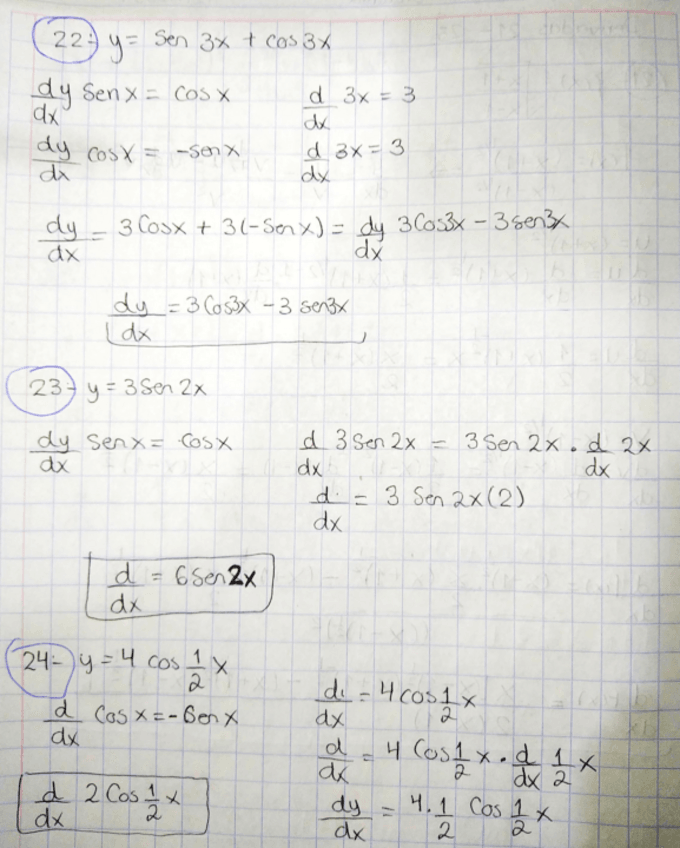 22- y = Sen 3x + cos 3x
dy/dx Sen x = cos x    d/dx 3x = 3
dy/dx cos x = -sen x    d/dx 3x = 3
dy/dx = 3 Cosx + 3(-Senx) = dy/dx 3Cos3x - 3sen3x
dy/dx = 3 Cos3x - 3 sen3x
23- y = 3Sen 2x
dy/dx Sen x = cosx    d/dx 3Sen 2x = 3Sen 2x . d/dx 2x
d/dx = 3 Sen 2x(2)
d/dx = 6Sen2x
24- y = 4 cos 1/2 x
d/dx Cos x = -Sen x    d/dx = 4cos 1/2 x
d/dx = 4 Cos 1/2 x . d/dx 1/2 x
d/dx 2 Cos 1/2 x    dy/dx = 4 . 1/2 Cos 1/2 x